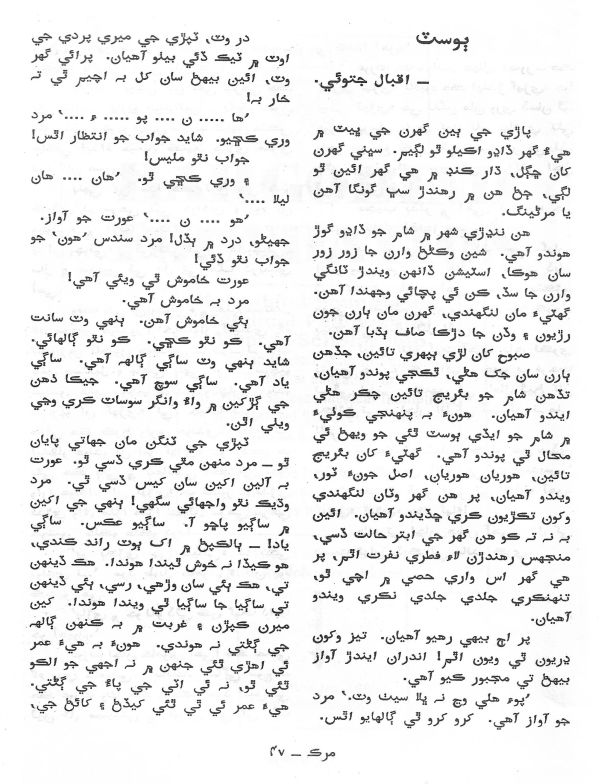 پوسٽ
— اقبال جتوئي.
پاڙي جي ٻين گهرن جي ڀيٽ ۾
هيءُ گهر ڏاڍو اڪيلو ٿو لڳيم. سڀني گهرن
کان ڇڳل، ڌار ڪنڊ ۾ هي گهر ائين ٿو
لڳي، ڄڻ هن ۾ رهندڙ سڀ گونگا آهن
يا مرڻينگ.
هن ننڍڙي شهر ۾ شام جو ڏاڍو گوڙ
هوندو آهي. شين وڪڻڻ وارن جا زور زور
سان هوڪا، اسٽيشن ڏانهن ويندڙ ٽانگي
وارن جا سڏ، ڪن ئي پچائي وجهندا آهن.
گهٽيءَ مان لنگهندي، گهرن مان ٻارن جون
رڙيون ۽ وڏن جا دڙڪا صاف ٻڌبا آهن.
صبوح کان لڙي ٻپهري تائين، جڏهن
ٻارن سان جک هڻي، ٿڪجي پوندو آهيان،
تڏهن شام جو بئريج تائين چڪر هڻي
ايندو آهيان. هونءَ به پنهنجي کوليءَ
۾ شام جو ايڏي ٻوسٽ ٿئي جو ويهڻ ئي
محال ٿي پوندو آهي. گهٽيءَ کان بئريج
تائين، هوريان هوريان، اصل جونءَ ٽور،
ويندو آهيان، پر هن گهر وٽان لنگهندي
وکون تکڙيون ڪري ڇڏيندو آهيان. ائين
به نه ته ڪو هن گهر جي ابتر حالت ڏسي،
منجهس رهندڙن لاءِ فطري نفرت اٿم، پر
هي گهر اس واري حصي ۾ اچي ٿو،
تنهنڪري جلدي جلدي نڪري ويندو
آهيان.
پر اڄ بيهي رهيو آهيان. تيز وکون
ڍريون ٿي ويون اٿم! اندران ايندڙ آواز
بيهڻ تي مجبور ڪيو آهي.
’پوءِ هلي وڃ نه ڀلا سيٺ وٽ.‘ مرد
جو آواز آهي. ڪرو ڪرو ٿي ڳالهايو اٿس.
در وٽ، ٽپڙي جي ميري پردي جي
اوٽ ۾ ٽيڪ ڏئي بيٺو آهيان. پرائي گهر
وٽ، ائين بيهڻ سان کل به اچيم ٿي ته
خار به!
’ها ..... ن .... پو ..... ءِ ....‘ مرد
وري ڪڇيو. شايد جواب جو انتظار اٿس!
جواب نٿو مليس!
۽ وري ڪڇي ٿو. ’هان .... هان
ليلا ....‘
’هو .... ن ....‘ عورت جو آواز.
جهيڻو، درد ۾ ٻڏل! مرد سندس ’هون‘ جو
جواب نٿو ڏئي!
عورت خاموش ٿي ويئي آهي!
مرد به خاموش آهي.
ٻئي خاموش آهن. ٻنهي وٽ سانت
آهي. ڪو نٿو ڪڇي. ڪو نٿو ڳالهائي.
شايد ٻنهي وٽ ساڳي ڳالهه آهي. ساڳي
ياد آهي. ساڳي سوچ آهي. جيڪا ذهن
جي ڳڙکين ۾ واءُ وانگر سوساٽ ڪري وڃي
ويئي اٿن.
ٽپڙي جي ٽنگن مان جهاتي پايان
ٿو — مرد منهن مٿي ڪري ڏسي ٿو. عورت
به آلين اکين سان کيس ڏسي ٿي. مرد
وڌيڪ نٿو واجهائي سگهي! ٻنهي جي اکين
۾ ساڳيو پاڇو آ. ساڳيو عڪس. ساڳي
ياد! — ٻالڪپڻ ۾ اک ٻوٽ راند ڪندي،
هو ڪيڏا نه خوش ٿيندا هوندا. هڪ ڏينهن
تي، هڪ ٻئي سان وڙهي، رسي، ٻئي ڏينهن
تي ساڳيا جا ساڳيا ٿي ويندا هوندا. کين
ميرن ڪپڙن ۽ غربت ۾ به ڪنهن ڳالهه
جي ڳڻتي نه هوندي. هونءَ به هيءَ عمر
ئي اهڙي ٿئي جنهن ۾ نه اجهي جو الڪو
ٿئي ٿو، نه ئي اٽي جي پاءُ جي ڳڻتي.
هيءَ عمر ئي ٿي ٿئي کيڏڻ ۽ کائڻ جي،
مرڪ — ۴۷